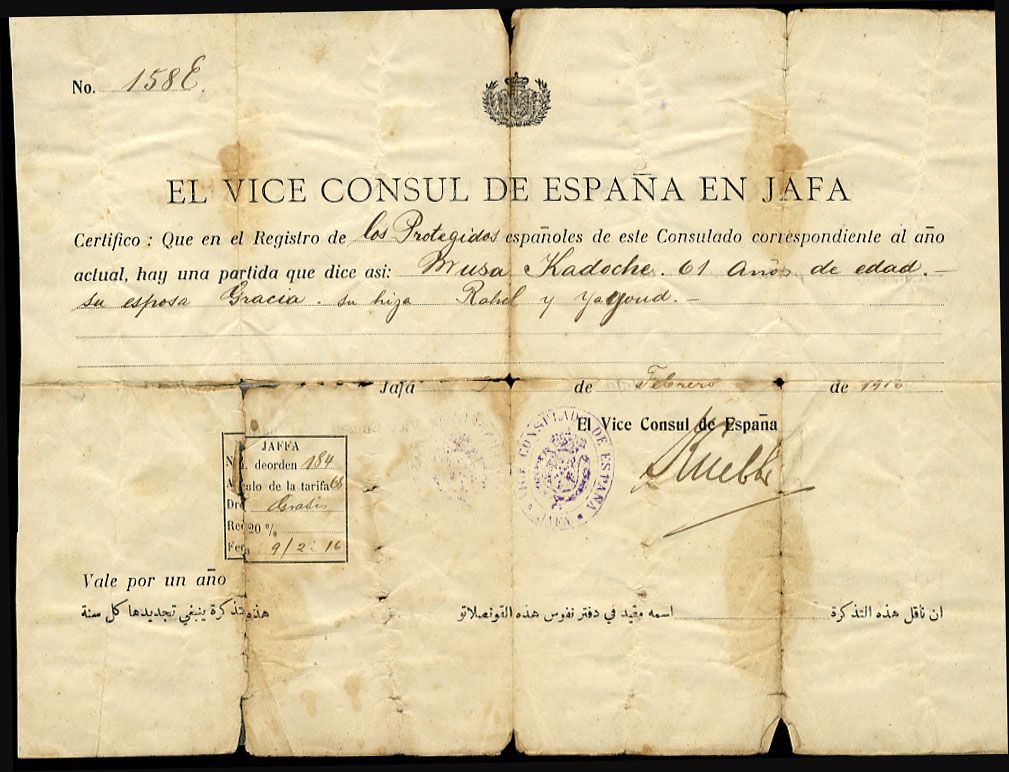 No. 158E.
EL VICE CONSUL DE ESPAÑA EN JAFA
Certifico : Que en el Registro de los Protegidos españoles de este Consulado correspondiente al año
actual, hay una partida que dice asi: Musa Kadoche. 61 años de edad. —
su esposa Gracia. su hiza Rahel y Yayoud. —
Jafa de Febrero de 1916
El Vice Consul de España
VICE CONSULADO DE ESPAÑA
JAFA
JAFFA
deorden 184
ulo de la tarifa 68
Gratis
20 %
9/2: 16
Vale por un año
ان ناقل هذه التذكرة اسمه مقيد في دفتر نفوس هذه القونصلاتو هذه تذكرة ينبغي تجديدها كل سنة